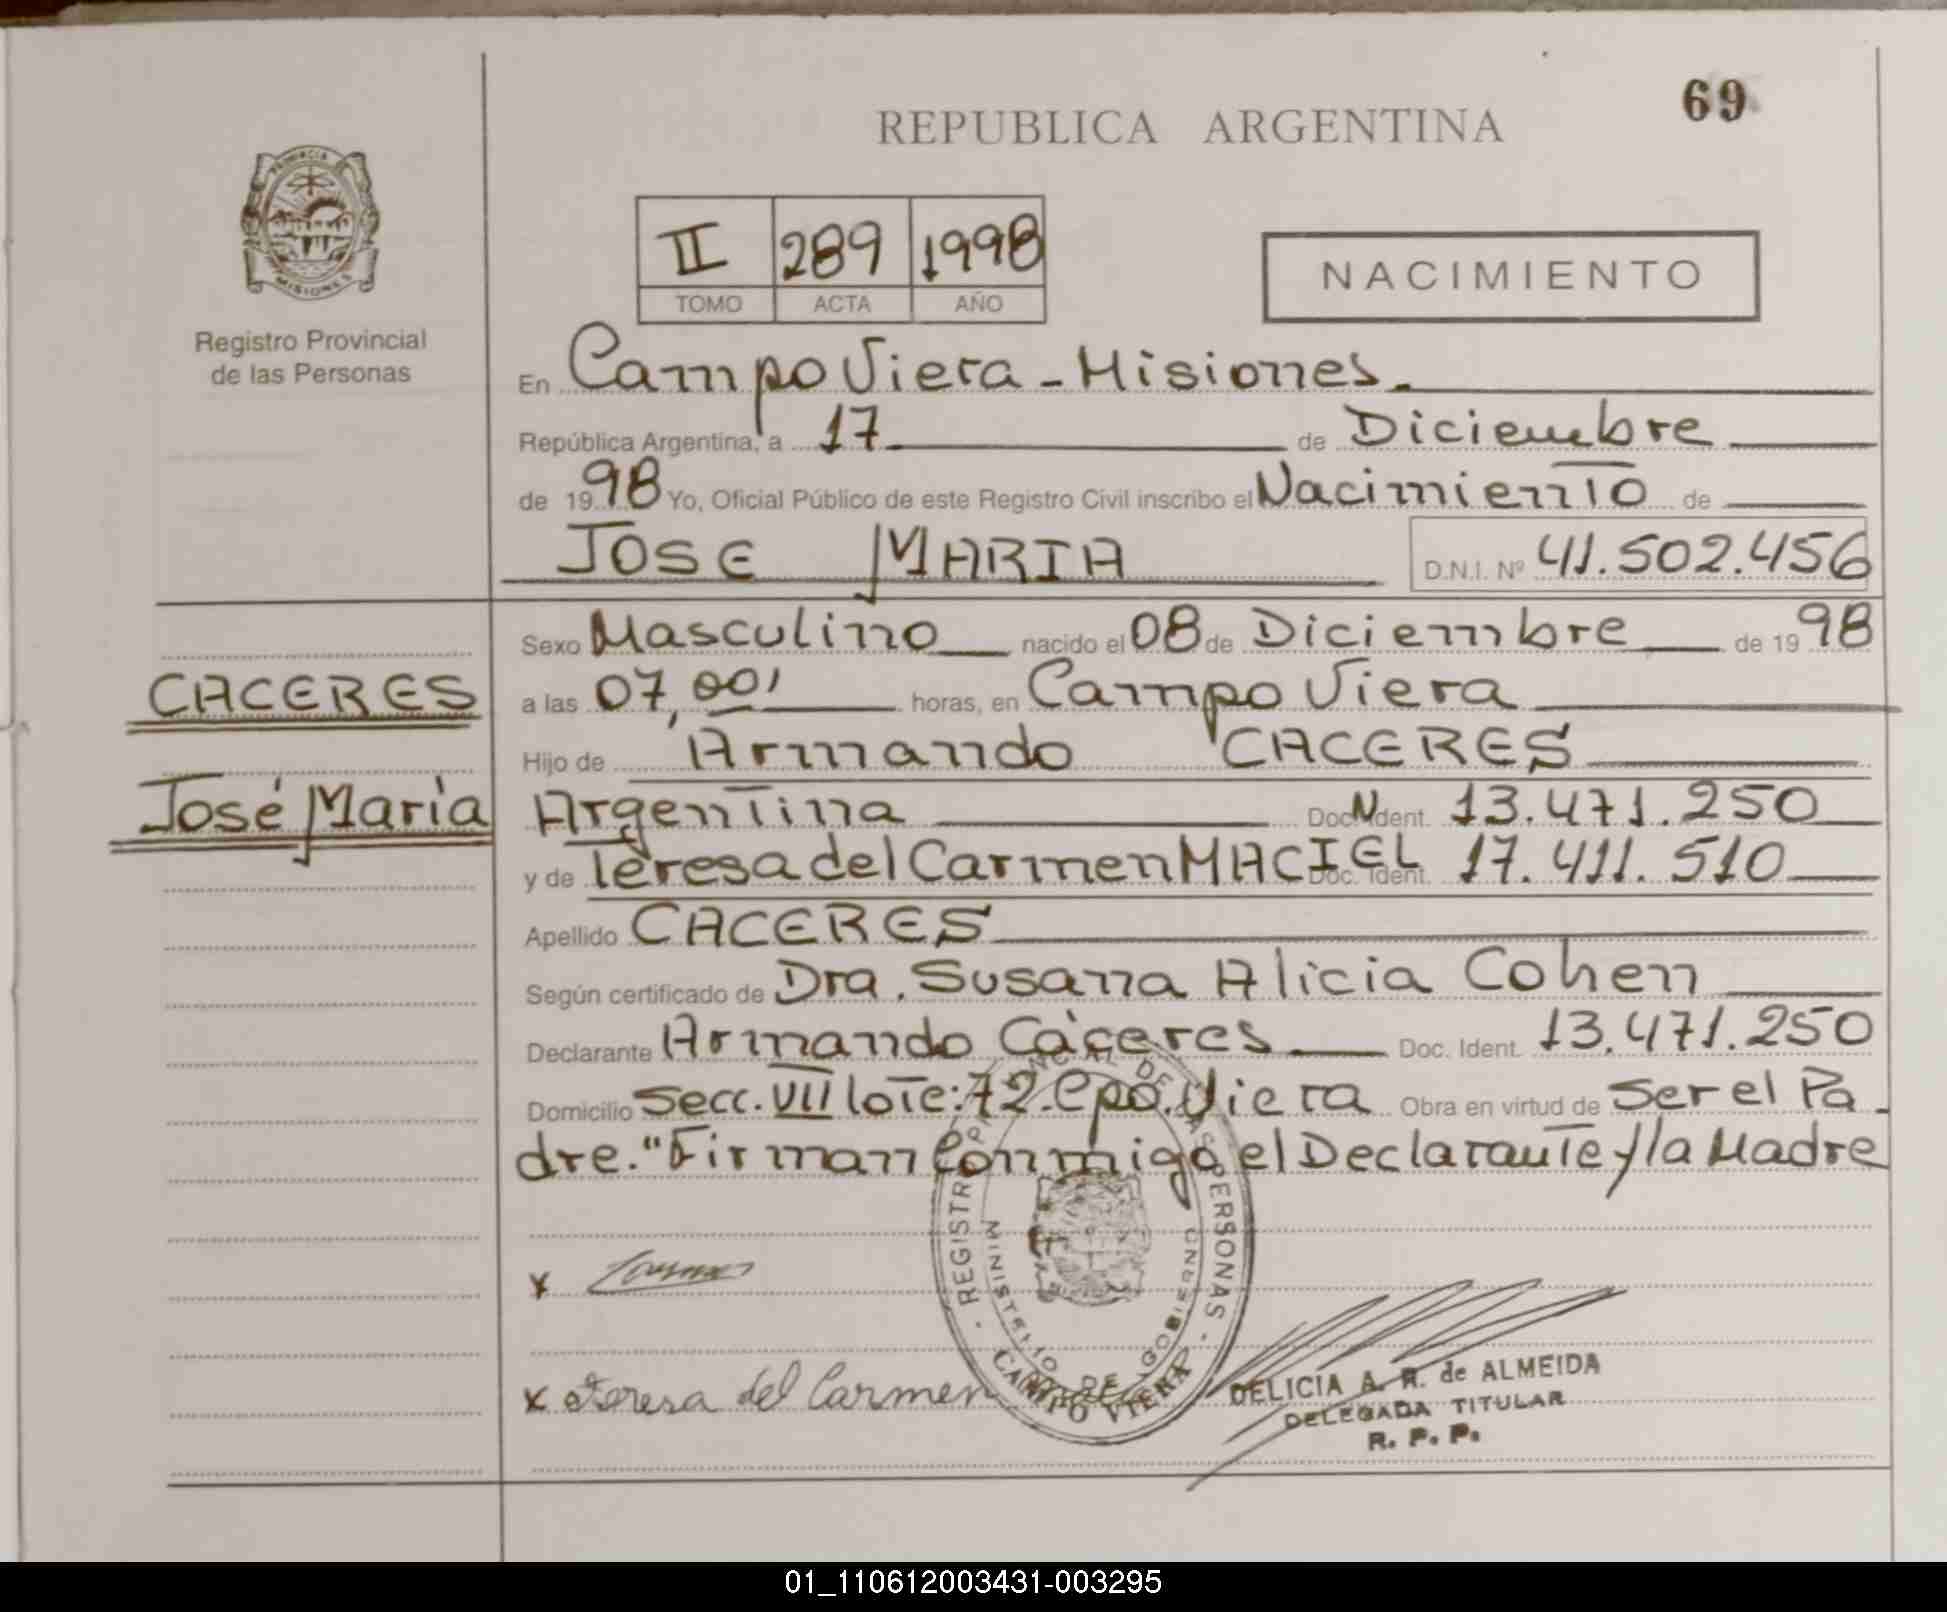 69
REPUBLICA ARGENTINA
PROVINCIA DE
MISIONES
Registro Provincial
de las Personas
II 289 1998
TOMO ACTA AÑO
NACIMIENTO
En Campo Viera - Misiones.
República Argentina, a 17 de Diciembre
de 1998 Yo, Oficial Público de este Registro Civil inscribo el Nacimiento de
JOSE MARIA D.N.I. Nº 41.502.456
Sexo Masculino nacido el 08 de Diciembre de 1998
CACERES
a las 07,00' horas, en Campo Viera
Hijo de Armando CACERES
José María
Argentina Doc. Ident. 13.471.250
y de Teresa del Carmen MACIEL Doc. Ident. 17.411.510
Apellido CACERES
Según certificado de Dra. Susana Alicia Cohen
Declarante Armando Cáceres Doc. Ident. 13.471.250
Domicilio Secc. VII lote: 72. Cpo. Viera Obra en virtud de Ser el Pa-
dre. "Firman Conmigo el Declarante y la Madre
REGISTRO PROVINCIAL DE LAS PERSONAS
MINISTERIO DE GOBIERNO
CAMPO VIERA
x
x Teresa del Carmen
DELICIA A. R. de ALMEIDA
DELEGADA TITULAR
R. P. P.
01_110612003431-003295